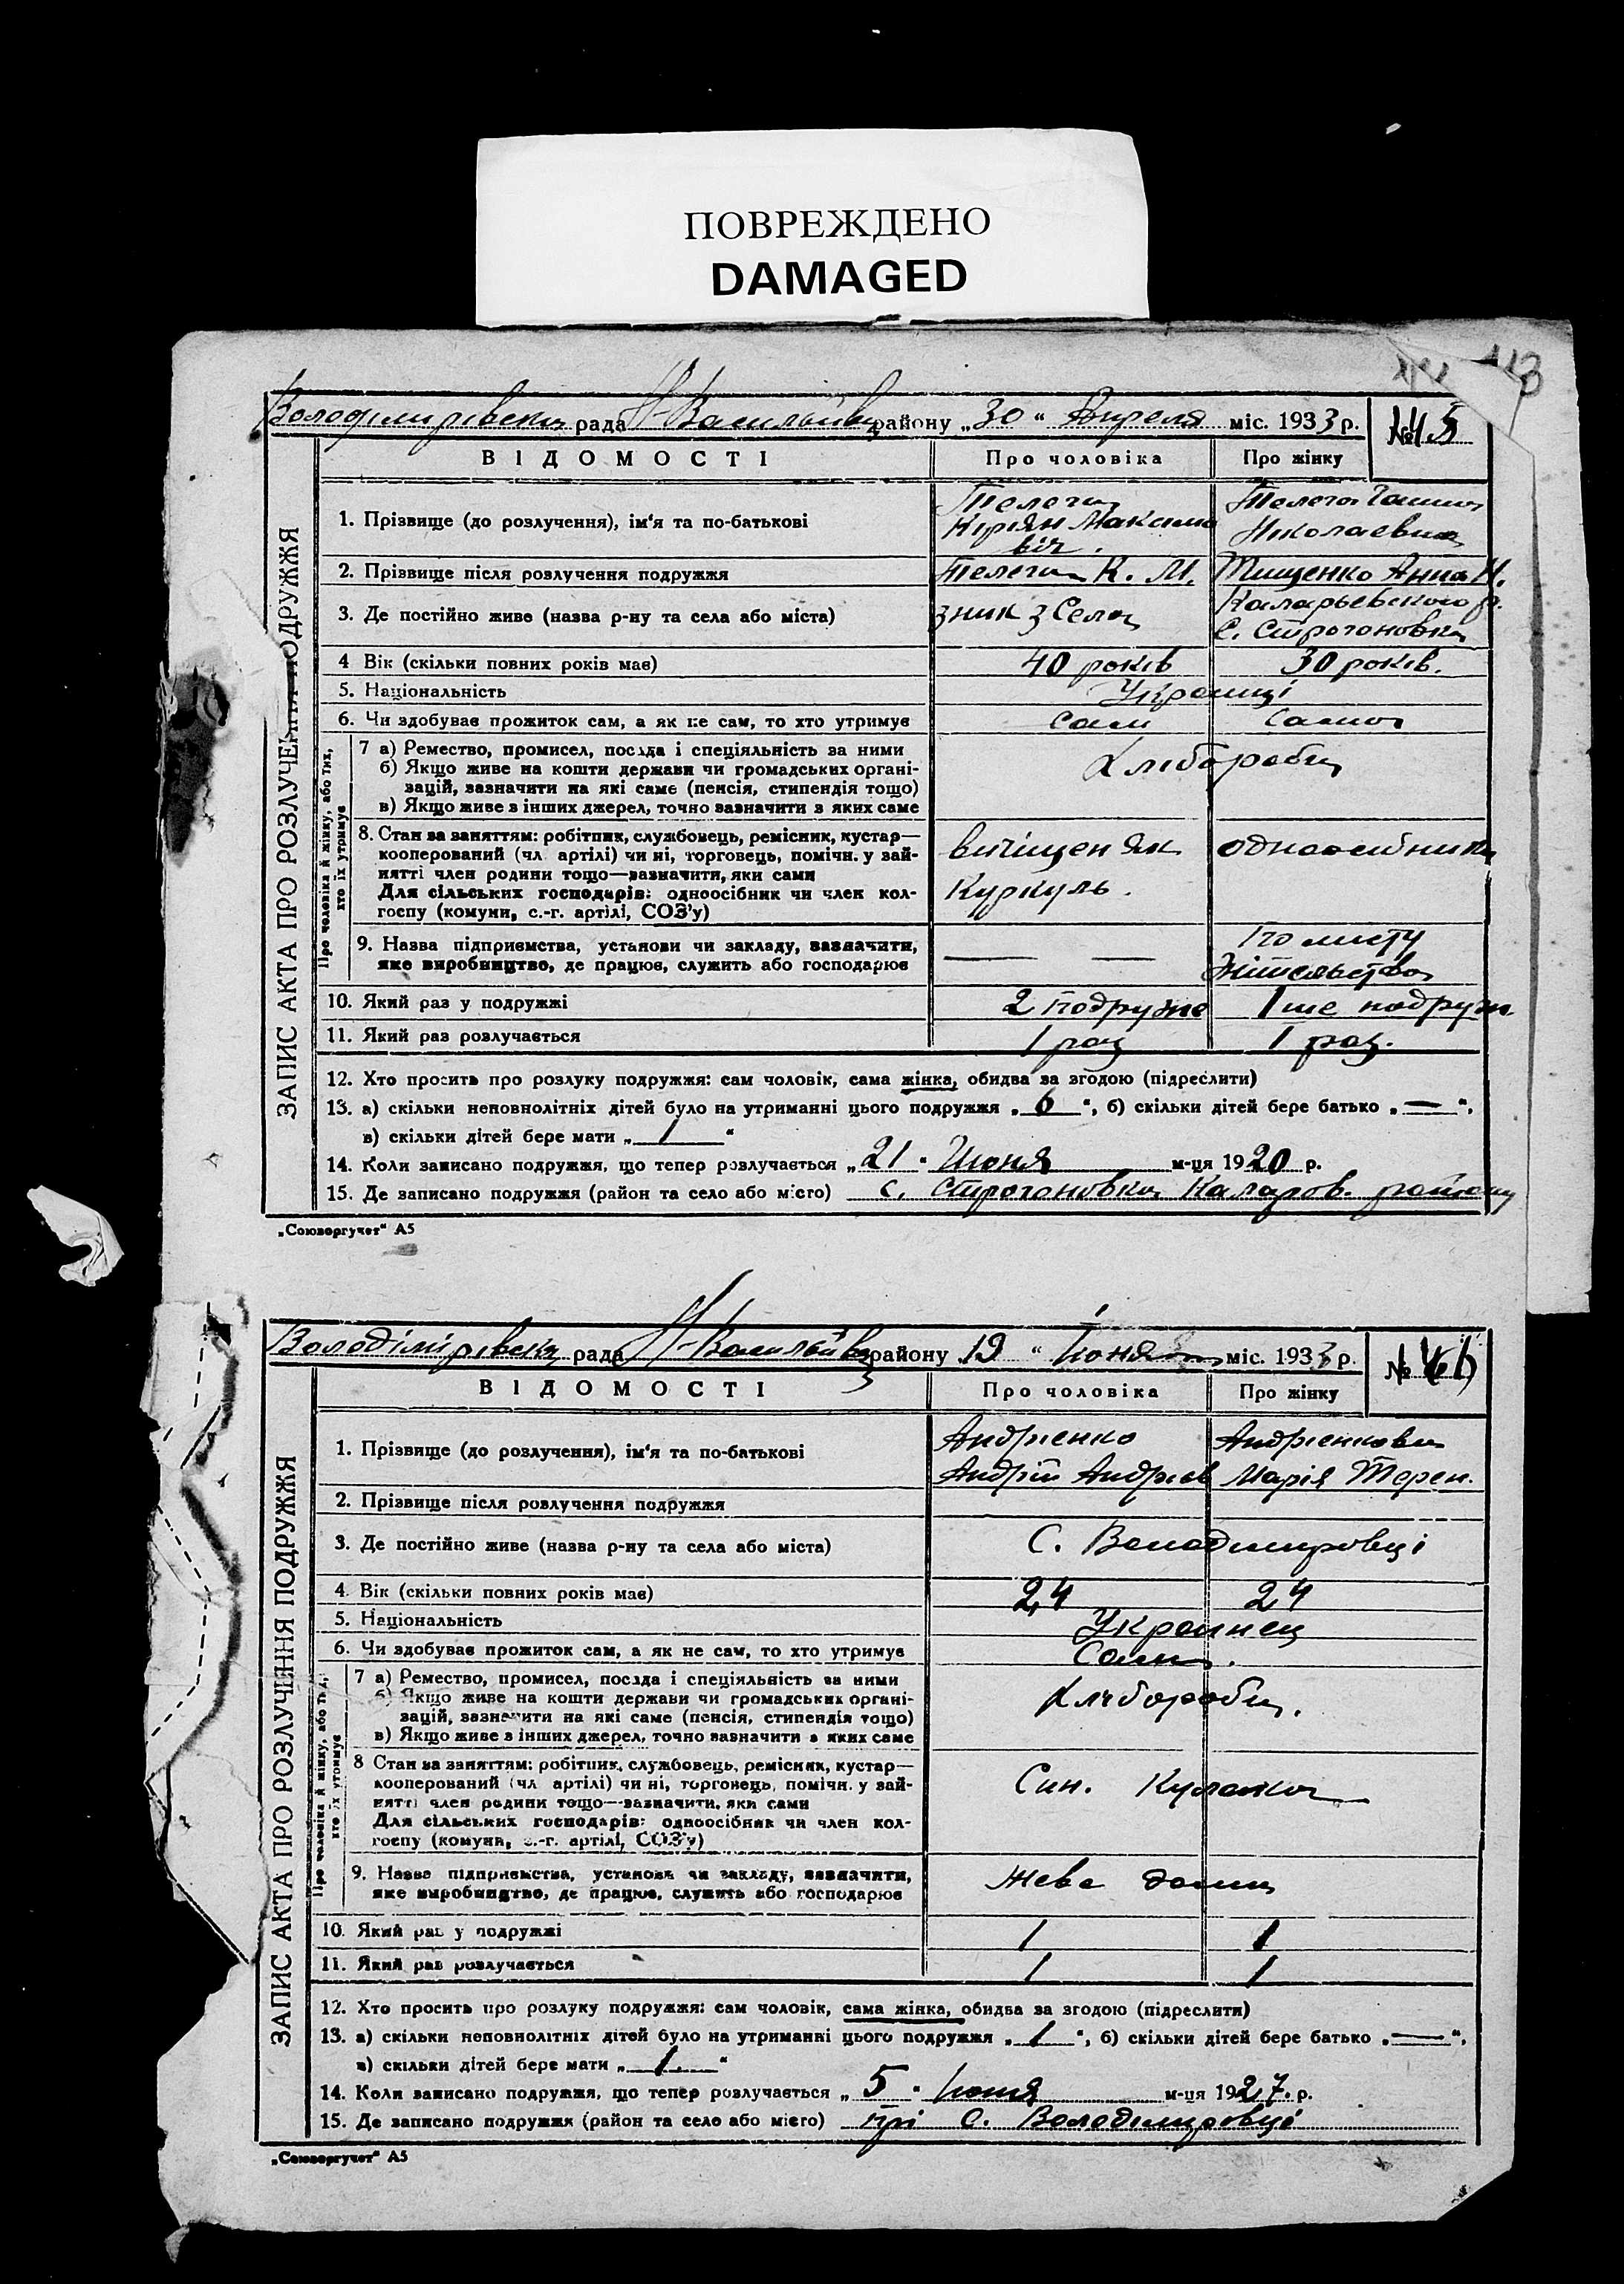 ПОВРЕЖДЕНО
DAMAGED
113
Володімирівска рада Н-Васильївка району „30“ Апреля міс. 1933 р. №45
ВІДОМОСТІ Про чоловіка Про жінку
ЗАПИС АКТА ПРО РОЗЛУЧЕННЯ ПОДРУЖЖЯ
1. Прізвище (до розлучення), ім'я та по-батькові Телега Кіріян Максимовіч. Телега Ганна Николаевна
2. Прізвище після розлучення подружжя Телега К. М. Тищенко Анна Н.
3. Де постійно живе (назва р-ну та села або міста) зник з Села Каларьевского р. С. Строгоновка
4 Вік (скільки повних років має) 40 років 30 років.
5. Національність Українці
6. Чи здобуває прожиток сам, а як не сам, то хто утримує Сам Сама
Про чоловіка й жінку, або тих, хто їх утримує
7 а) Ремество, промисел, посада і спеціяльність за ними Хлібороби
б) Якщо живе на кошти держави чи громадських органі-
зацій, зазначити на які саме (пенсія, стипендія тощо)
в) Якщо живе з інших джерел, точно зазначити з яких саме
8. Стан за заняттям: робітник, службовець, ремісник, кустар— вичіщен як одноосібника
кооперований (чл. артілі) чи ні, торговець, помічн. у зай-
нятті член родини тощо—зазначити, яки сами Куркуль.
Для сільських господарів: одноосібник чи член кол-
госпу (комуни, с.-г. артілі, СОЗ'у)
9. Назва підприємства, установи чи закладу, зазначити, — — по листу
яке виробництво, де працює, служить або господарює Жітельства
10. Який раз у подружжі 2 подружже 1ше подруж
11. Який раз розлучається 1 раз 1 раз.
12. Хто просить про розлуку подружжя: сам чоловік, сама жінка, обидва за згодою (підреслити)
13. а) скільки неповнолітніх дітей було на утриманні цього подружжя „6“, б) скільки дітей бере батько „—“,
в) скільки дітей бере мати „1“
14. Коли записано подружжя, що тепер розлучається „21“ Июня м-ця 1920 р.
15. Де записано подружжя (район та село або місто) с. Строгоновка Каларов. району
„Союзоргучет“ А5
Володімірівска рада Н-Васильївка району 19 “ Іюня міс. 1933 р. № 46
ВІДОМОСТІ Про чоловіка Про жінку
ЗАПИС АКТА ПРО РОЗЛУЧЕННЯ ПОДРУЖЖЯ
1. Прізвище (до розлучення), ім'я та по-батькові Андрієнко Андрієнкова
Андрій Андрієв Марія Терен.
2. Прізвище після розлучення подружжя
3. Де постійно живе (назва р-ну та села або міста) С. Володимировці
4. Вік (скільки повних років має) 24 24
5. Національність Украинец
6. Чи здобуває прожиток сам, а як не сам, то хто утримує Сами.
Про чоловіка й жінку, або тих, хто їх утримує
7 а) Ремество, промисел, посада і спеціяльність за ними
б) Якщо живе на кошти держави чи громадських органі- Хлібороби.
зацій, зазначити на які саме (пенсія, стипендія тощо)
в) Якщо живе з інших джерел, точно зазначити з яких саме
8 Стан за заняттям: робітник, службовець, ремісник, кустар— Син. Кулака
кооперований (чл артілі) чи ні, торговець, помічн. у зай-
нятті член родини тощо—зазначити, яки сами
Для сільських господарів: одноосібник чи член кол-
госпу (комуни, с.-г. артілі, СОЗ'у)
9. Назва підприємства, установи чи закладу, зазначити, Жеве дома
яке виробництво, де працює, служить або господарює
10. Який раз у подружжі 1 1
11. Який раз розлучається 1 1
12. Хто просить про розлуку подружжя: сам чоловік, сама жінка, обидва за згодою (підреслити)
13. а) скільки неповнолітніх дітей було на утриманні цього подружжя „1“, б) скільки дітей бере батько „—“,
в) скільки дітей бере мати „1.“
14. Коли записано подружжя, що тепер розлучається „5“ Іюня м-ця 1927. р.
15. Де записано подружжя (район та село або місто) прі С. Володимировці
„Союзоргучет“ А5